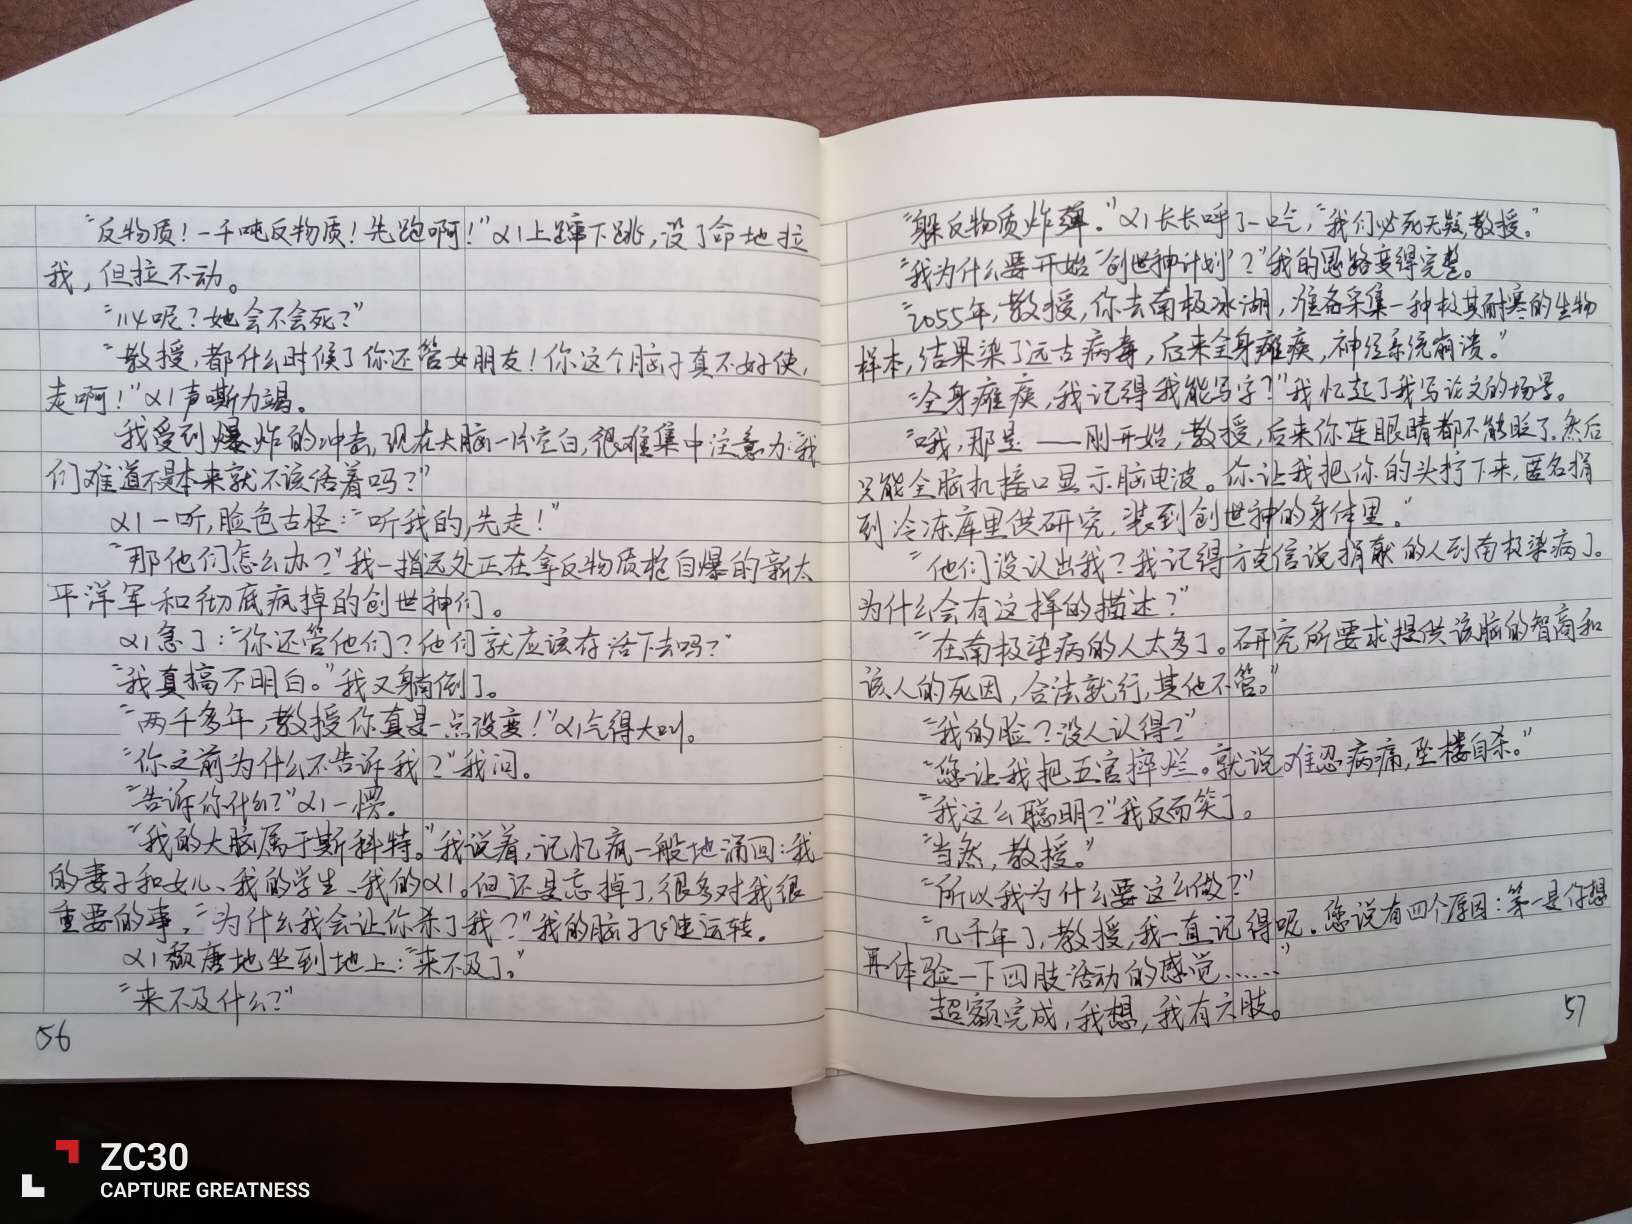 "反物质!一千吨反物质!先跑啊!"α1上蹿下跳,没了命地拉
我,但拉不动。
呢?她会不会死?"
"教授,都什么时候了你还管女朋友!你这个脑子真不好使,
走啊!"α1声嘶力竭。
我受到爆炸的冲击,现在大脑一片空白,很难集中注意力:"我
们难道不是本来就不该活着吗?"
α1一听,脸色古怪:"听我的,先走!"
"那他们怎么办?"我一指远处正在拿反物质枪自爆的新太
平洋军和彻底疯掉的创世神们。
α1急了:"你还管他们?他们就应该存活下去吗?"
"我真搞不明白。"我又躺倒了。
"两千多年,教授你真是一点没变!"α1气得大叫。
"你之前为什么不告诉我?"我问。
"告诉你什么?"α1一愣。
"我的大脑属于斯科特。"我说着,记忆疯一般地涌回:我
的妻子和女儿、我的学生、我的α1。但还是忘掉了很多对我很
重要的事,"为什么我会让你杀了我?"我的脑子飞速运转。
α1颓唐地坐到地上:"来不及了。"
"来不及什么?"
56
"躲反物质炸弹。"α1长长呼了一口气,"我们必死无疑,教授。"
"我为什么要开始"创世神计划"?"我的思路变得完整。
"2055年,教授,你去南极冰湖,准备采集一种极其耐寒的生物
样本,结果染了远古病毒,后来全身瘫痪,神经系统崩溃。"
"全身瘫痪,我记得我能写字?"我忆起了我写论文的场景。
"哦,那是——刚开始,教授,后来你连眼睛都不能眨了。然后
只能全脑机接口显示脑电波。你让我把你的头拧下来,匿名捐
到冷冻库里供研究,装到创世神的身体里。"
"他们没认出我?我记得方克信说捐献的人到南极染病了。
为什么会有这样的描述?"
"在南极染病的人太多了。研究所要求提供该脑的智商和
该人的死因,合法就行,其他不管。"
"我的脸?没人认得?"
"您让我把五官摔烂。就说难忍病痛,坠楼自杀。"
"我这么聪明?"我反而笑了。
"当然,教授。"
"所以我为什么要这么做?"
"几千年了,教授,我一直记得呢。您说有四个原因:第一是你想
再体验一下四肢活动的感觉……"
超额完成,我想,我有六肢。
57
ZC30
CAPTURE GREATNESS